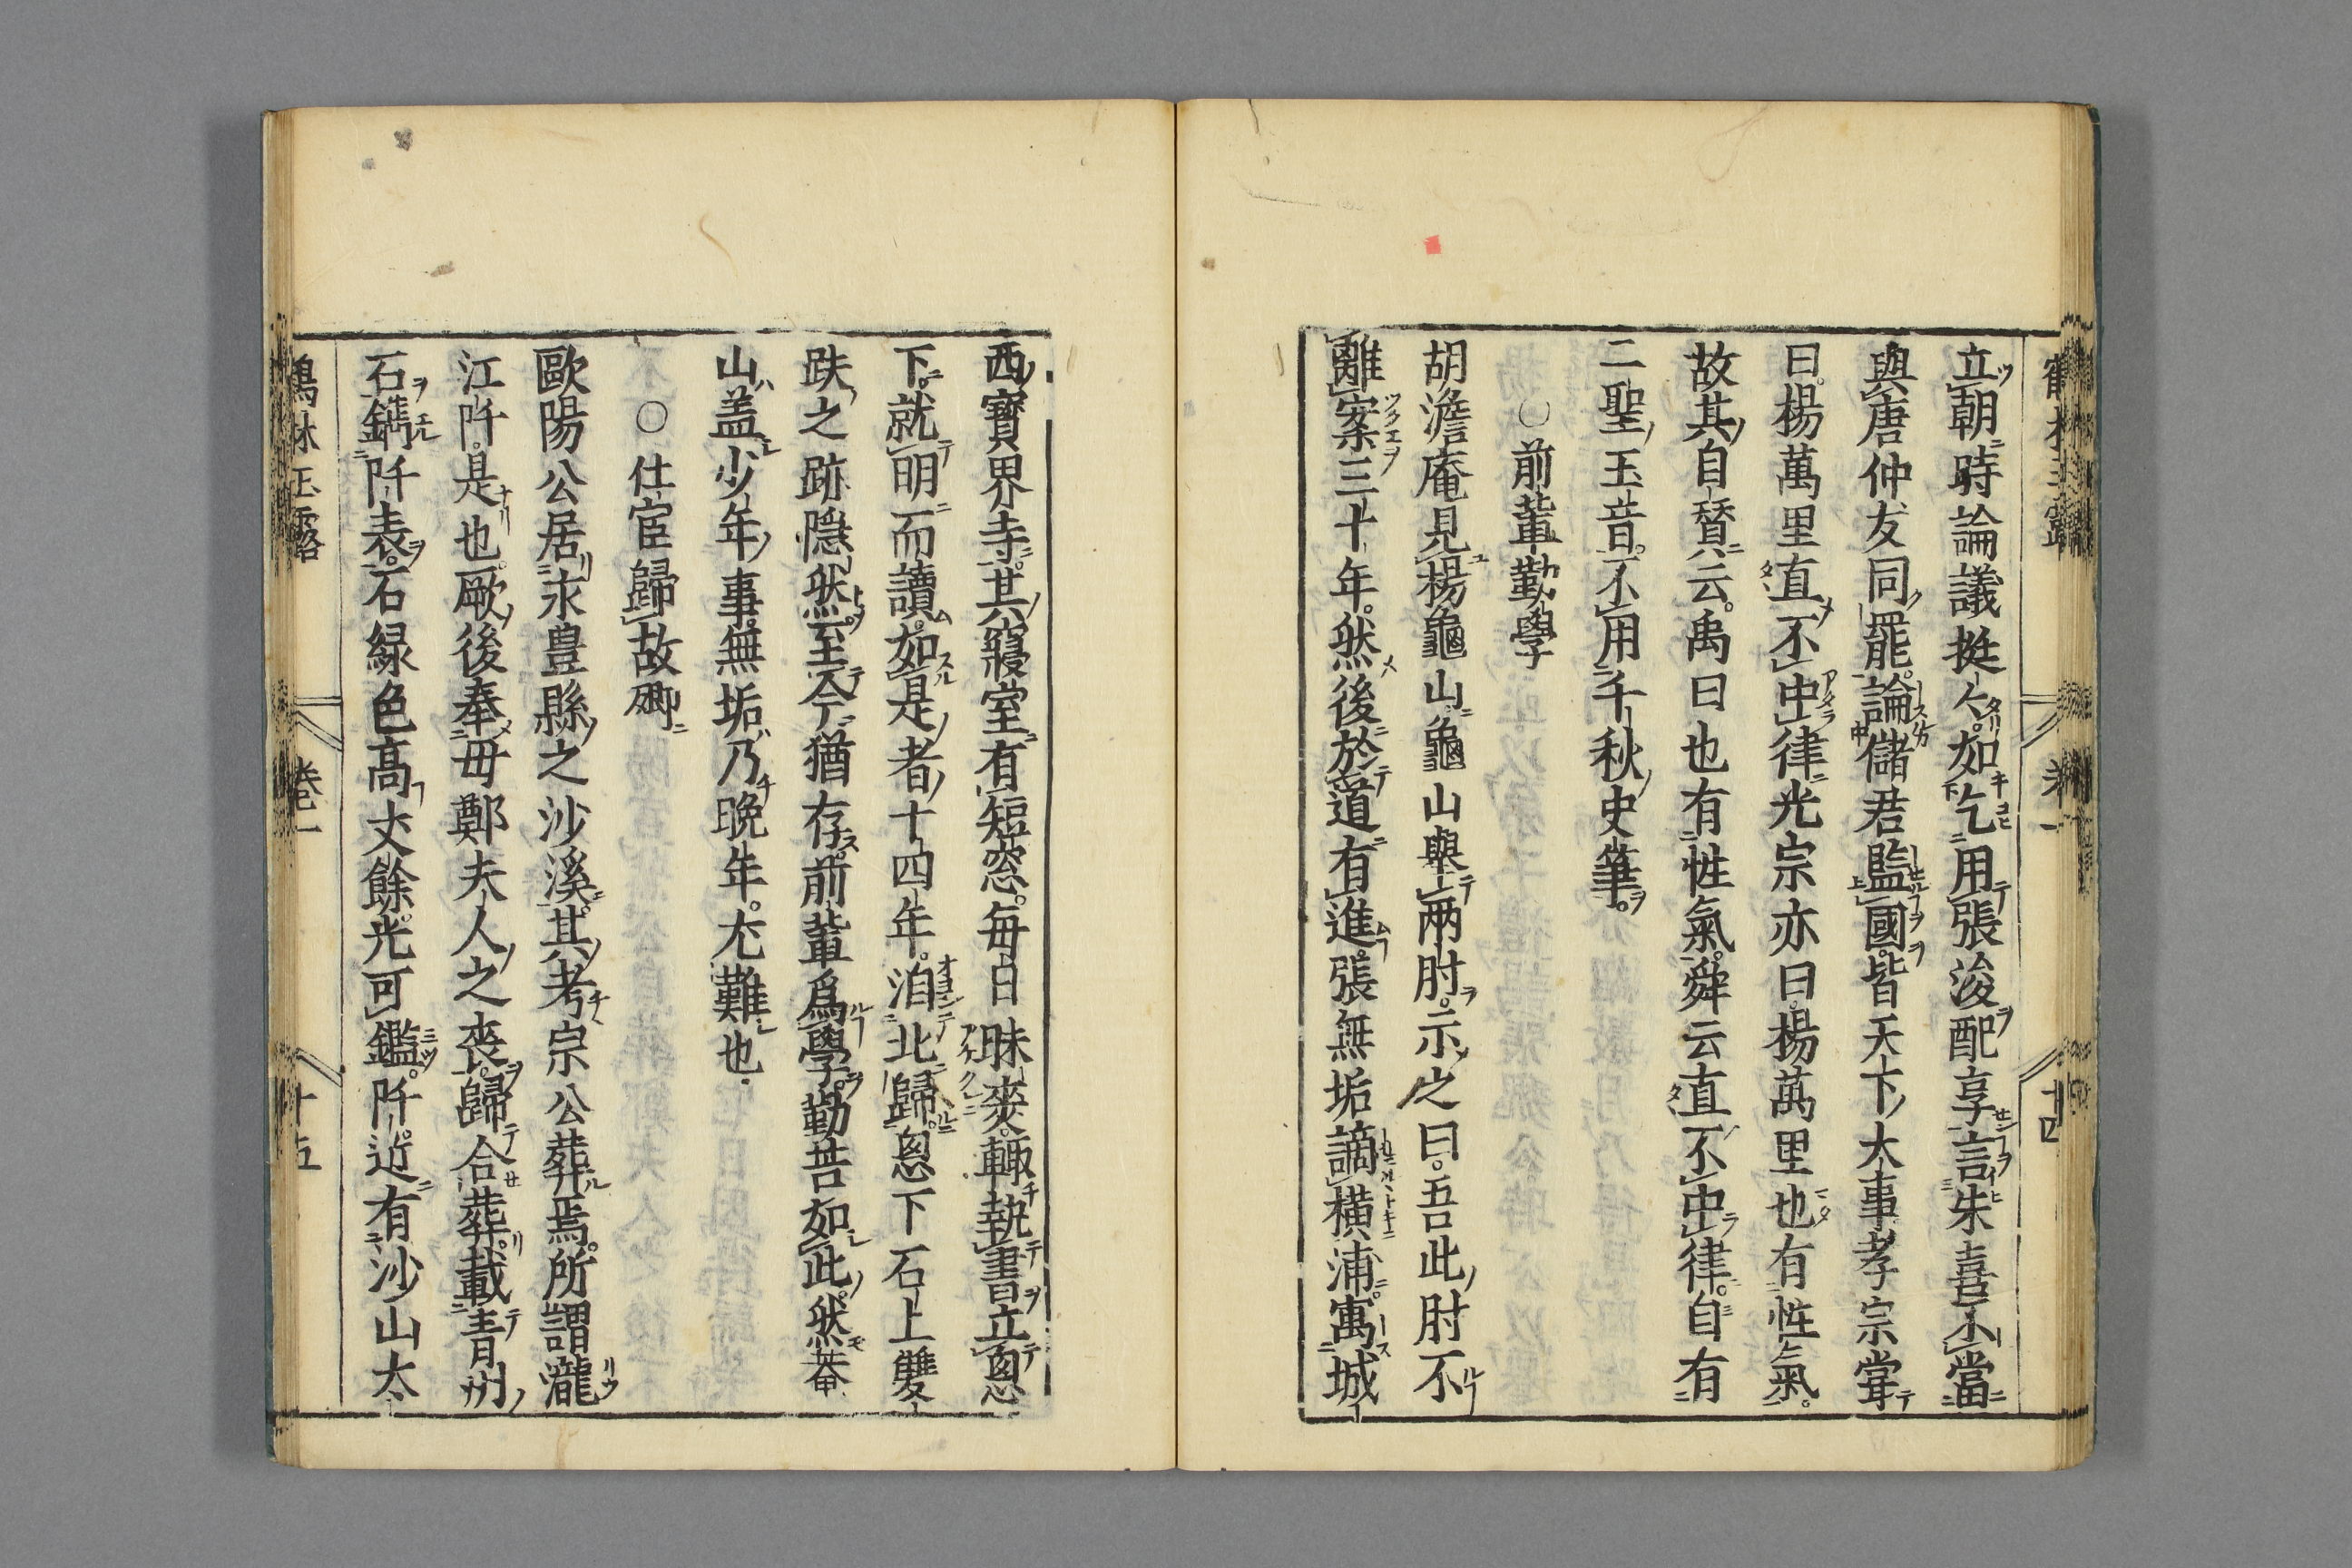 立朝時論議挺々如乞用張浚配享言朱喜不當
與唐仲友同罷論儲君監國皆天下大事孝宗甞
曰楊萬里直不中律光宗亦曰楊萬里也有性氣
故其自賛云禹曰也有性氣舜云直不中律自有
二聖玉音不用千秋史筆
○前輩勤學
胡澹庵見楊龜山龜山舉兩肘示之曰吾此肘不
離案三十年然後於道有進張無垢謫橫浦寓城
西寶界寺其寢室有短窓毎日昧爽輙執書立窻
下就明而讀如是者十四年洎北歸窻下石上雙
趺之跡隱然至今猶存前輩爲學勤苦如此然菴
山盖少年事無垢乃晚年尤難也
○仕宦歸故鄉
歐陽公居永豊縣之沙溪其考宗公葬焉所謂瀧
江阡是也厥後奉母鄭夫人之喪歸合葬載青州
石鐫阡表石緑色高丈餘光可鑑阡近有沙山太
鶴林玉露 卷一 十五